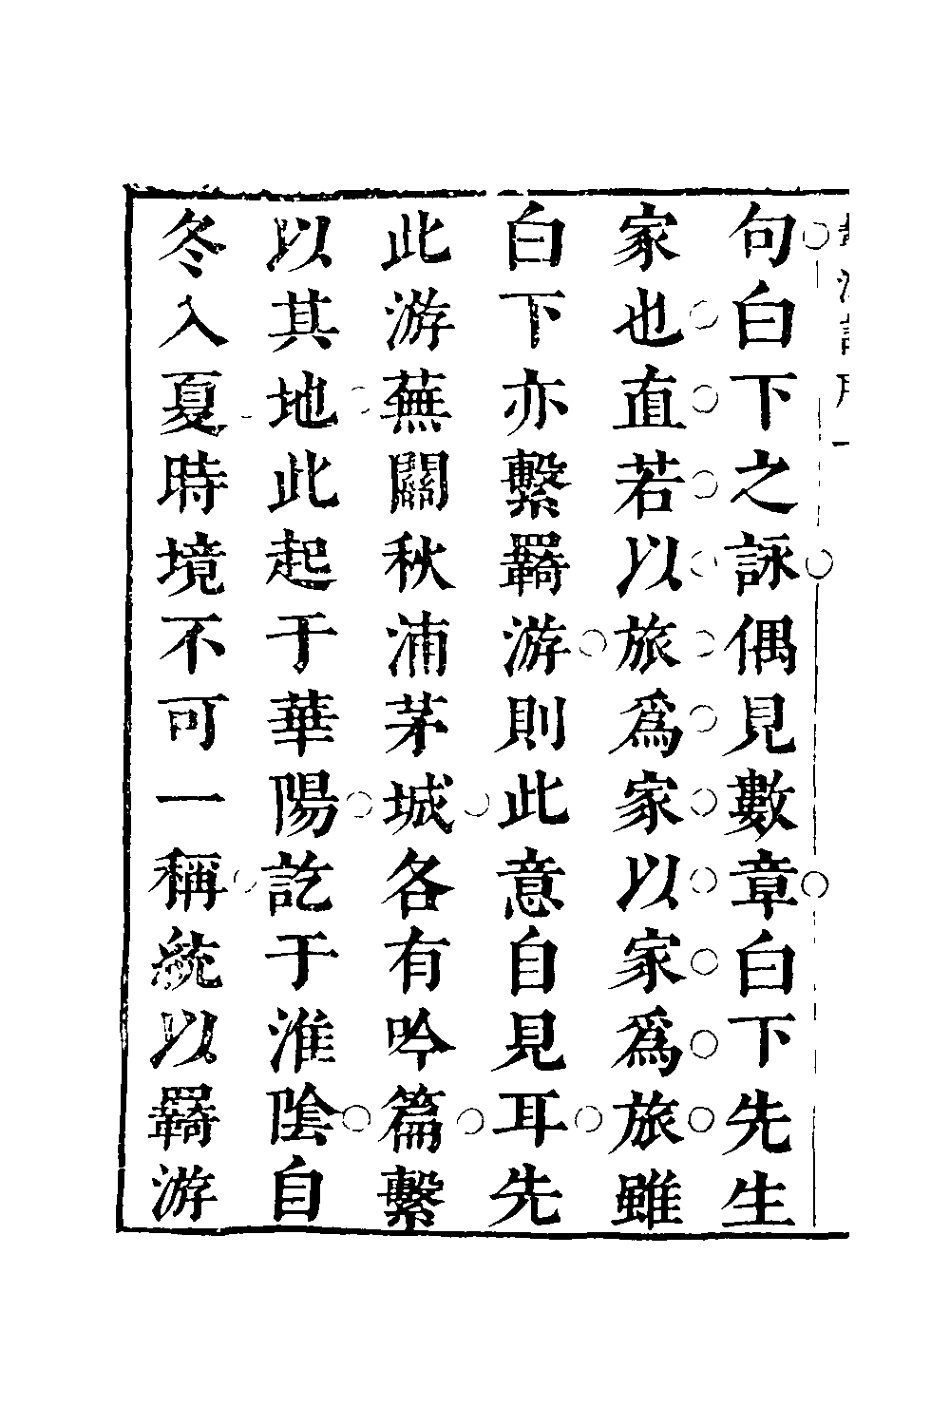 句白下之詠偶見數章白下先生
家也直若以旅爲家以家爲旅雖
白下亦繫羇游則此意自見耳先
此游蕪關秋浦茅城各有吟篇繫
以其地此起于華陽訖于淮陰自
冬入夏時境不可一稱統以羇游